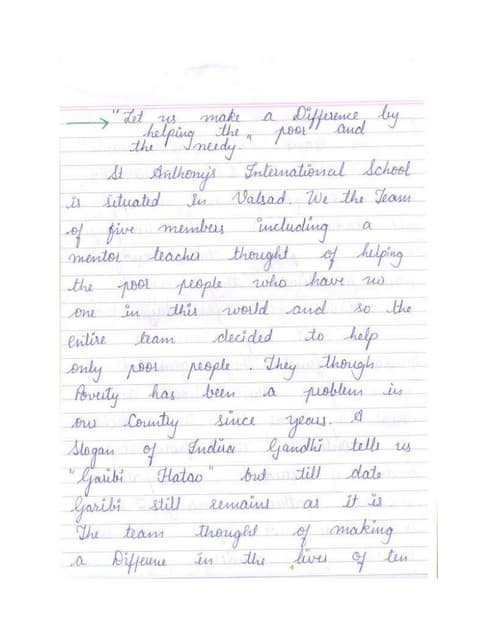 "Let us make a Difference by
helping the poor and
the needy."
St Anthony's International School
is situated in Valsad. We the Team
of five members including a
mentor teacher thought of helping
the poor people who have no
one in this world and so the
entire team decided to help
only poor people. They though
Poverty has been a problem in
our Country since years. A
Slogan of Indira Gandhi tells us
"Garibi Hatao" but till date
Garibi still remains as it is
The team thought of making
a Differene in the lives of ten